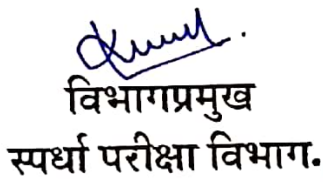 विभागप्रमुख
स्पर्धा परीक्षा विभाग.